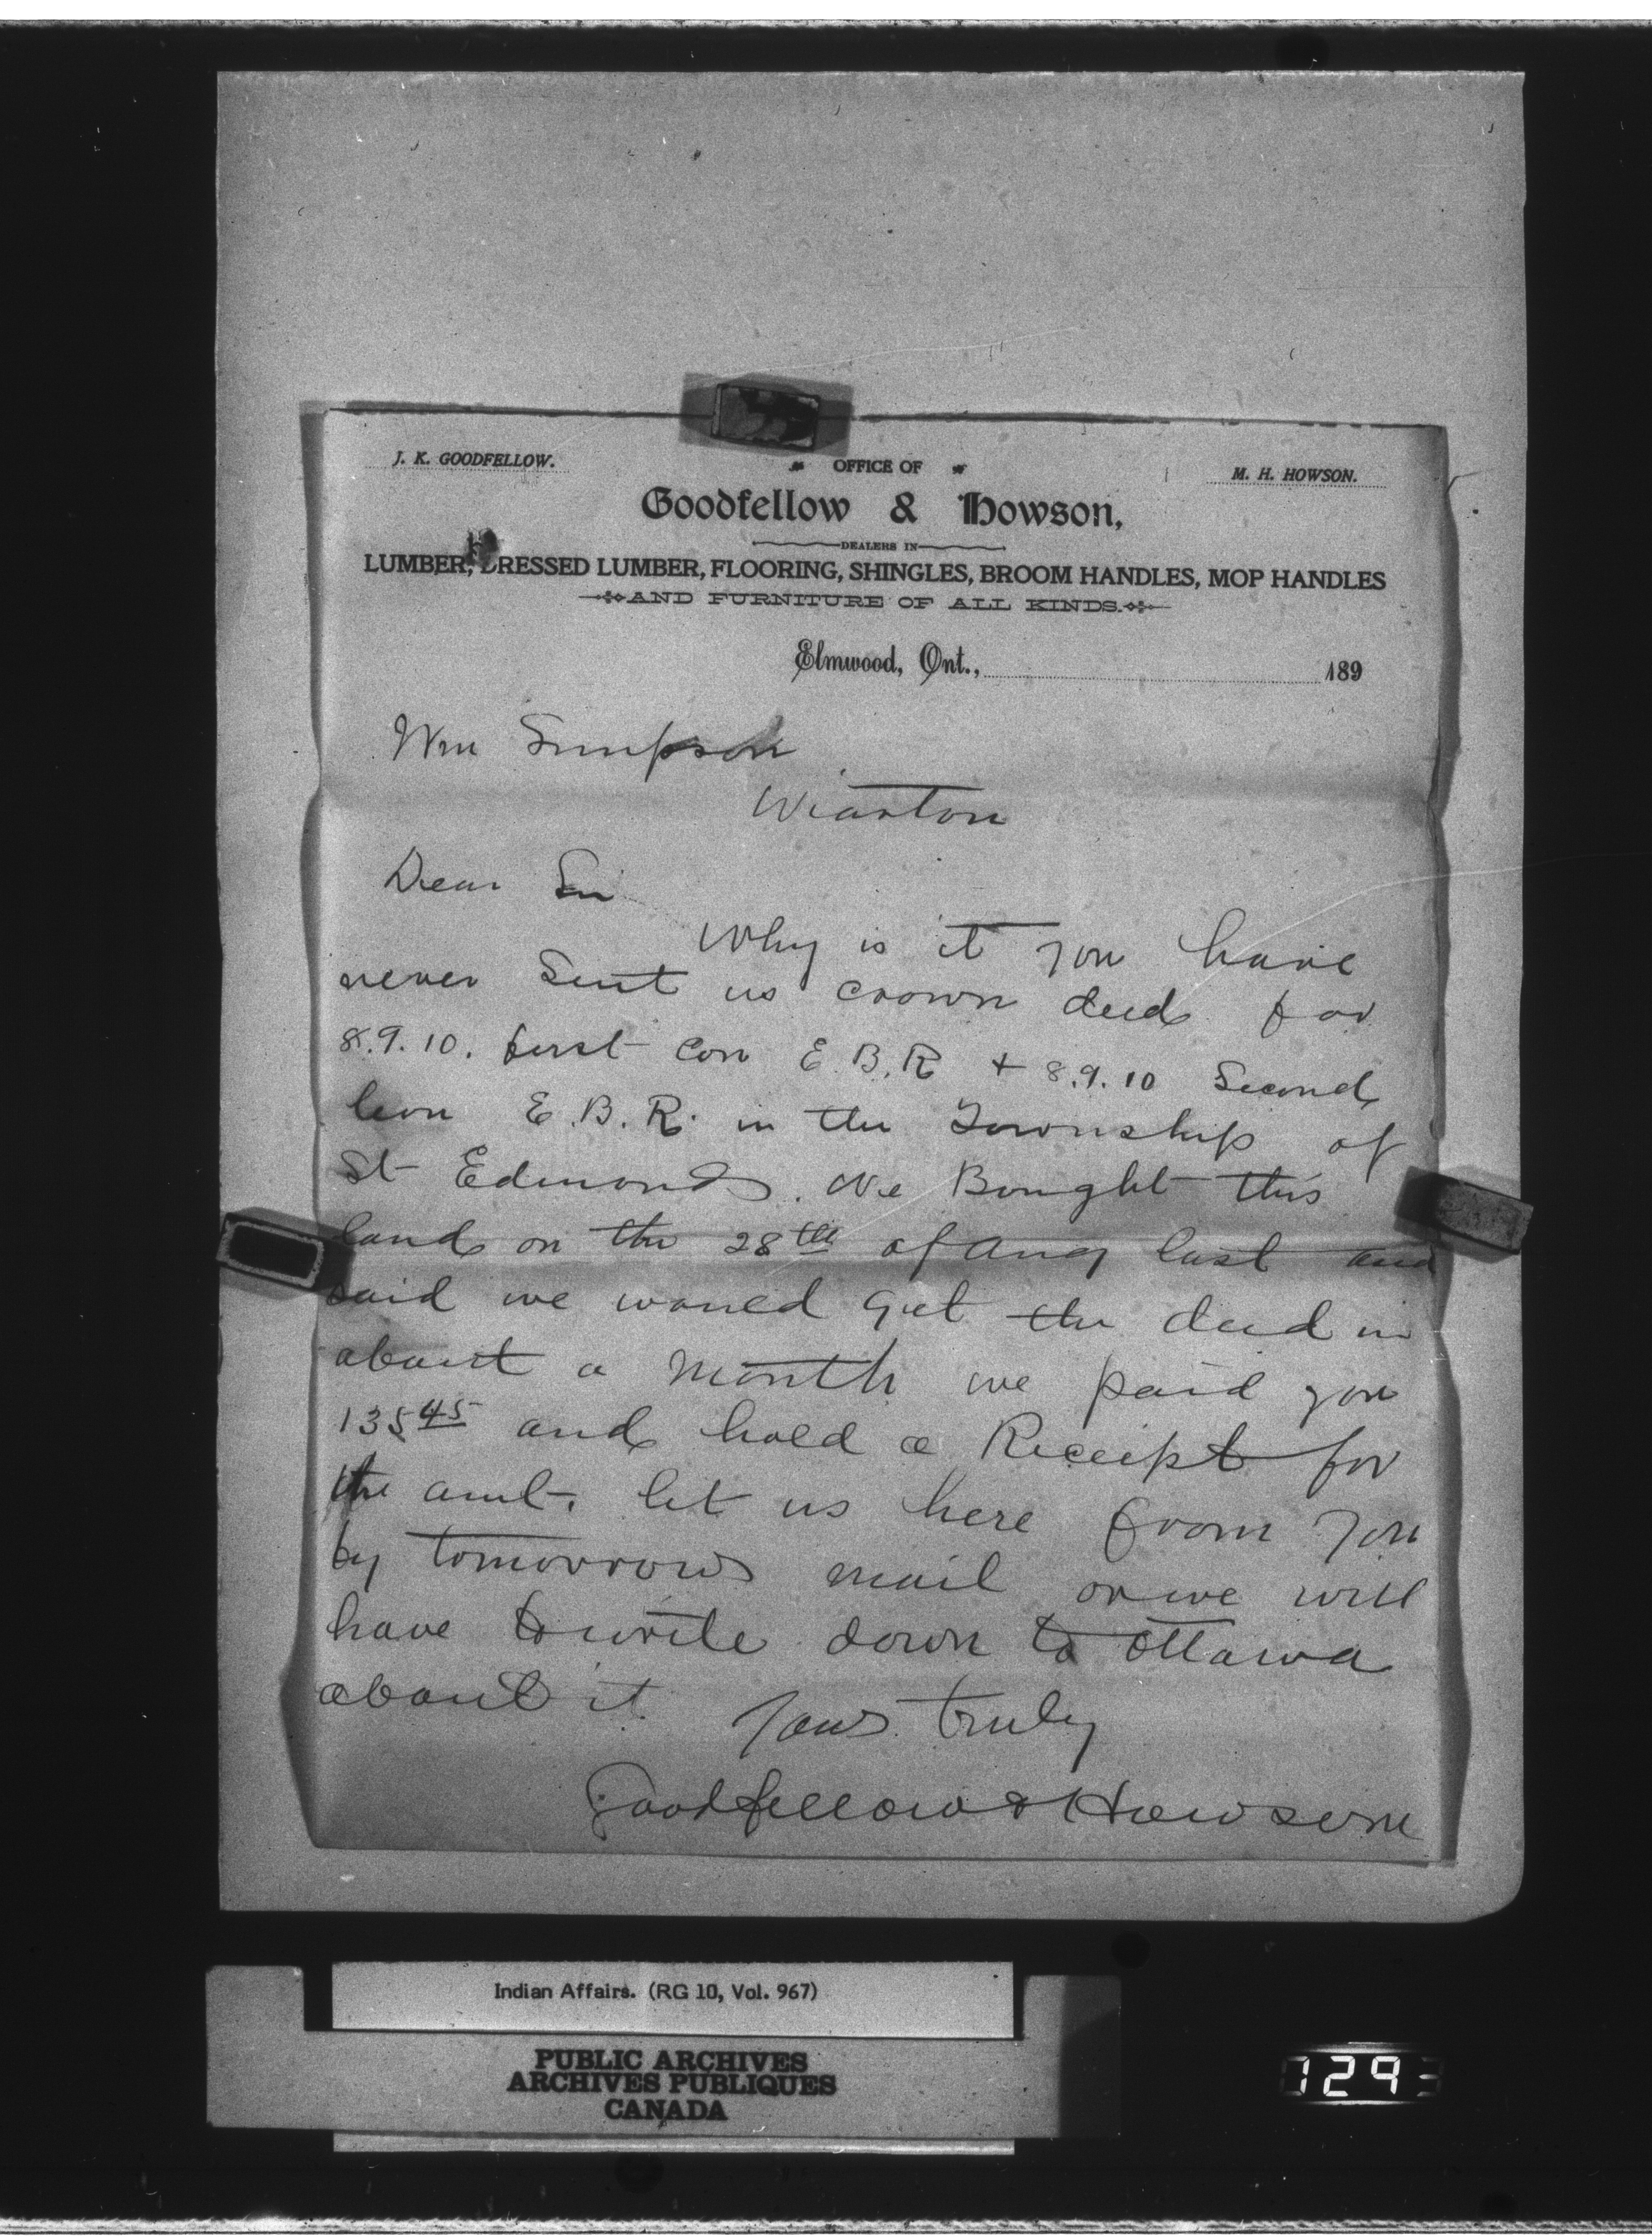 J. K. GOODFELLOW.
OFFICE OF
M. H. HOWSON.
Goodfellow & Howson,
DEALERS IN
LUMBER, DRESSED LUMBER, FLOORING, SHINGLES, BROOM HANDLES, MOP HANDLES
AND FURNITURE OF ALL KINDS.
Elmwood, Ont., 189
Wm Simpson
Wiarton
Dear Sir
Why is it you have
never Sent us crown deed for
8.9.10. first Con E.B.R + 8.9.10 Second
Con E.B.R. in the Township of
St Edmonds. We Bought this
land on the 28th of Aug last and
said we would get the deed in
about a month we paid you
135 45 and hold a Receipt for
the amt. let us here from you
by tomorrows mail or we will
have to write down to Ottawa
about it
Yours truly
Goodfellow & Howson
Indian Affairs. (RG 10, Vol. 967)
PUBLIC ARCHIVES
ARCHIVES PUBLIQUES
CANADA